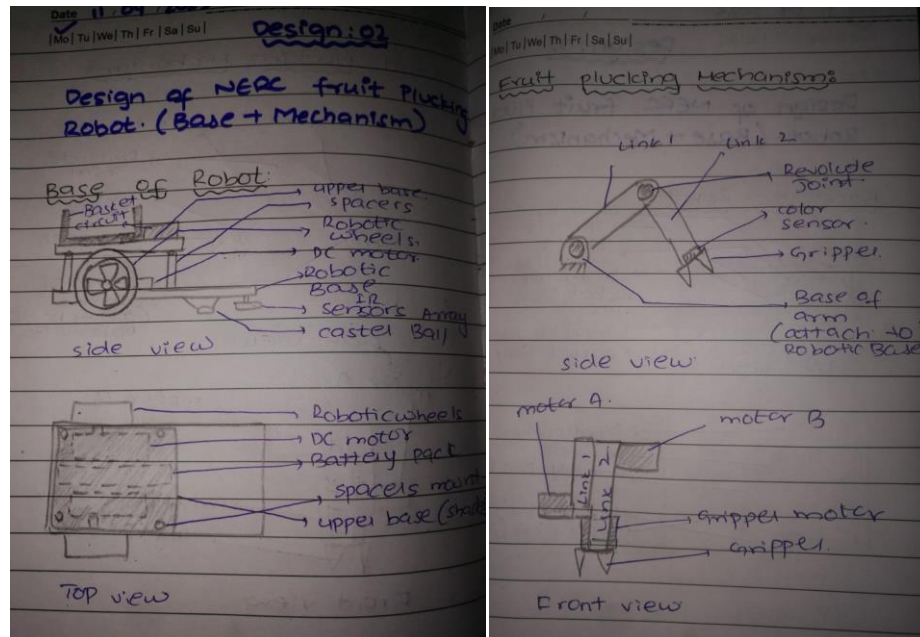 Date 11/04/
|Mo|Tu|We|Th|Fr|Sa|Su|
Design:02
Design of NERC fruit Plucking
Robot. (Base + Mechanism)
Base of Robot:
Basket
circuit
upper base
spacers
Robotic
wheels.
DC motor
Robotic
Base
IR
sensors Array
caster Ball
side view
Robotic wheels
DC motor
Battery pack
spacers mount
upper base (shade
Top view
Date
|Mo|Tu|We|Th|Fr|Sa|Su|
Fruit plucking Mechanism:
Link 1
Link 2
Revolude
Joint.
color
sensor.
Gripper.
Base of
arm
(attach to
Robotic Base
side view.
motor A.
motor B
Link 1
Link 2
Gripper motor
Gripper.
Front view